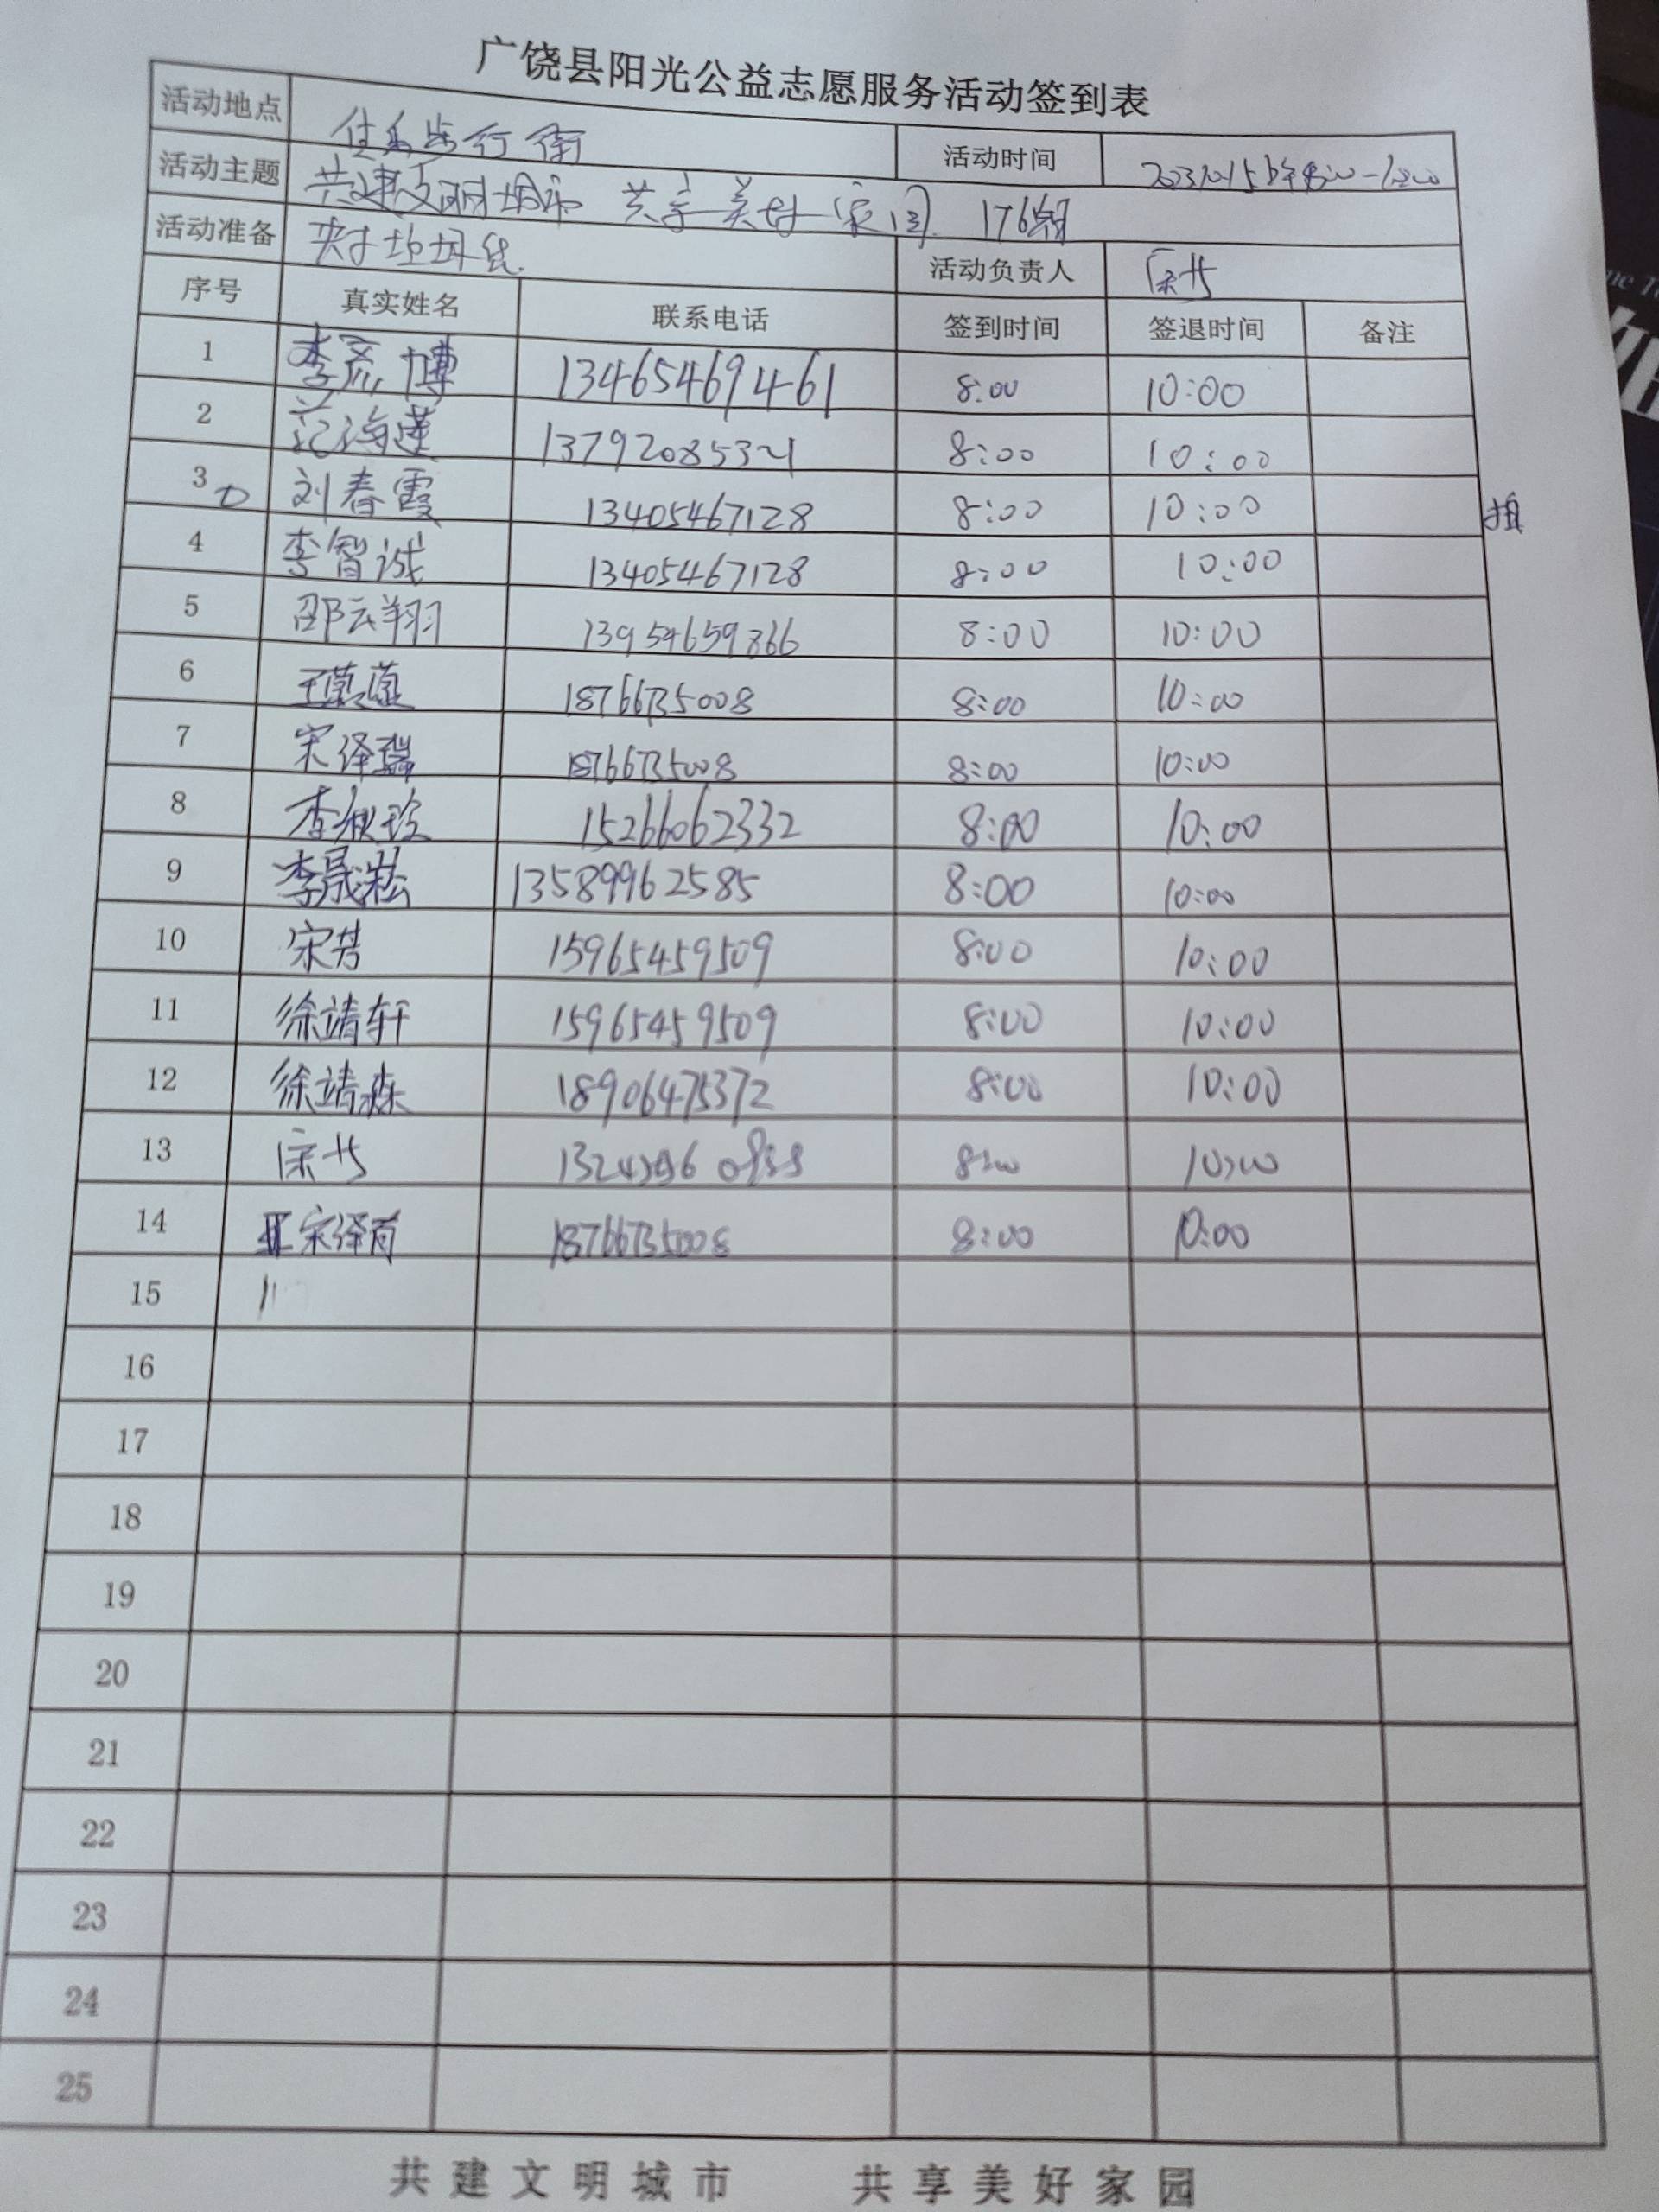 广饶县阳光公益志愿服务活动签到表
活动地点 佳乐步行街 活动时间
活动主题 共建文明城市 共享美好家园 176期
活动准备 夹子 垃圾袋 活动负责人
序号 真实姓名 联系电话 签到时间 签退时间 备注
1 李彦博 13465469461 8:00 10:00
2 范海莲 13792085321 8:00 10:00
3 刘春霞 13405467128 8:00 10:00
4 李智诚 13405467128 8:00 10:00
5 邵云翔 13954659866 8:00 10:00
6 18766735008 8:00 10:00
7 宋泽瑞 18766735008 8:00 10:00
8 李淑珍 15266062332 8:00 10:00
9 李晟淞 13589962585 8:00 10:00
10 宋芳 15965459509 8:00 10:00
11 徐靖轩 15965459509 8:00 10:00
12 徐靖森 18906475372 8:00 10:00
13 8:00 10:00
14 宋泽育 18766735008 8:00 10:00
15
16
17
18
19
20
21
22
23
24
25
共建文明城市 共享美好家园